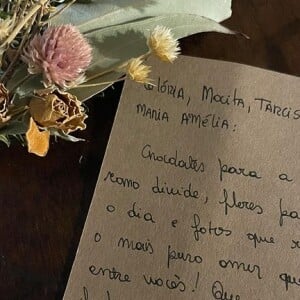 GLÓRIA, MOCITA, TARCIS
MARIA AMÉLIA:
CHOCOLATES PARA A
COMO DIVIDE, FLORES PA
O DIA E FOTOS QUE
O MAIS PURO AMOR QU
ENTRE VOCÊS! QUE